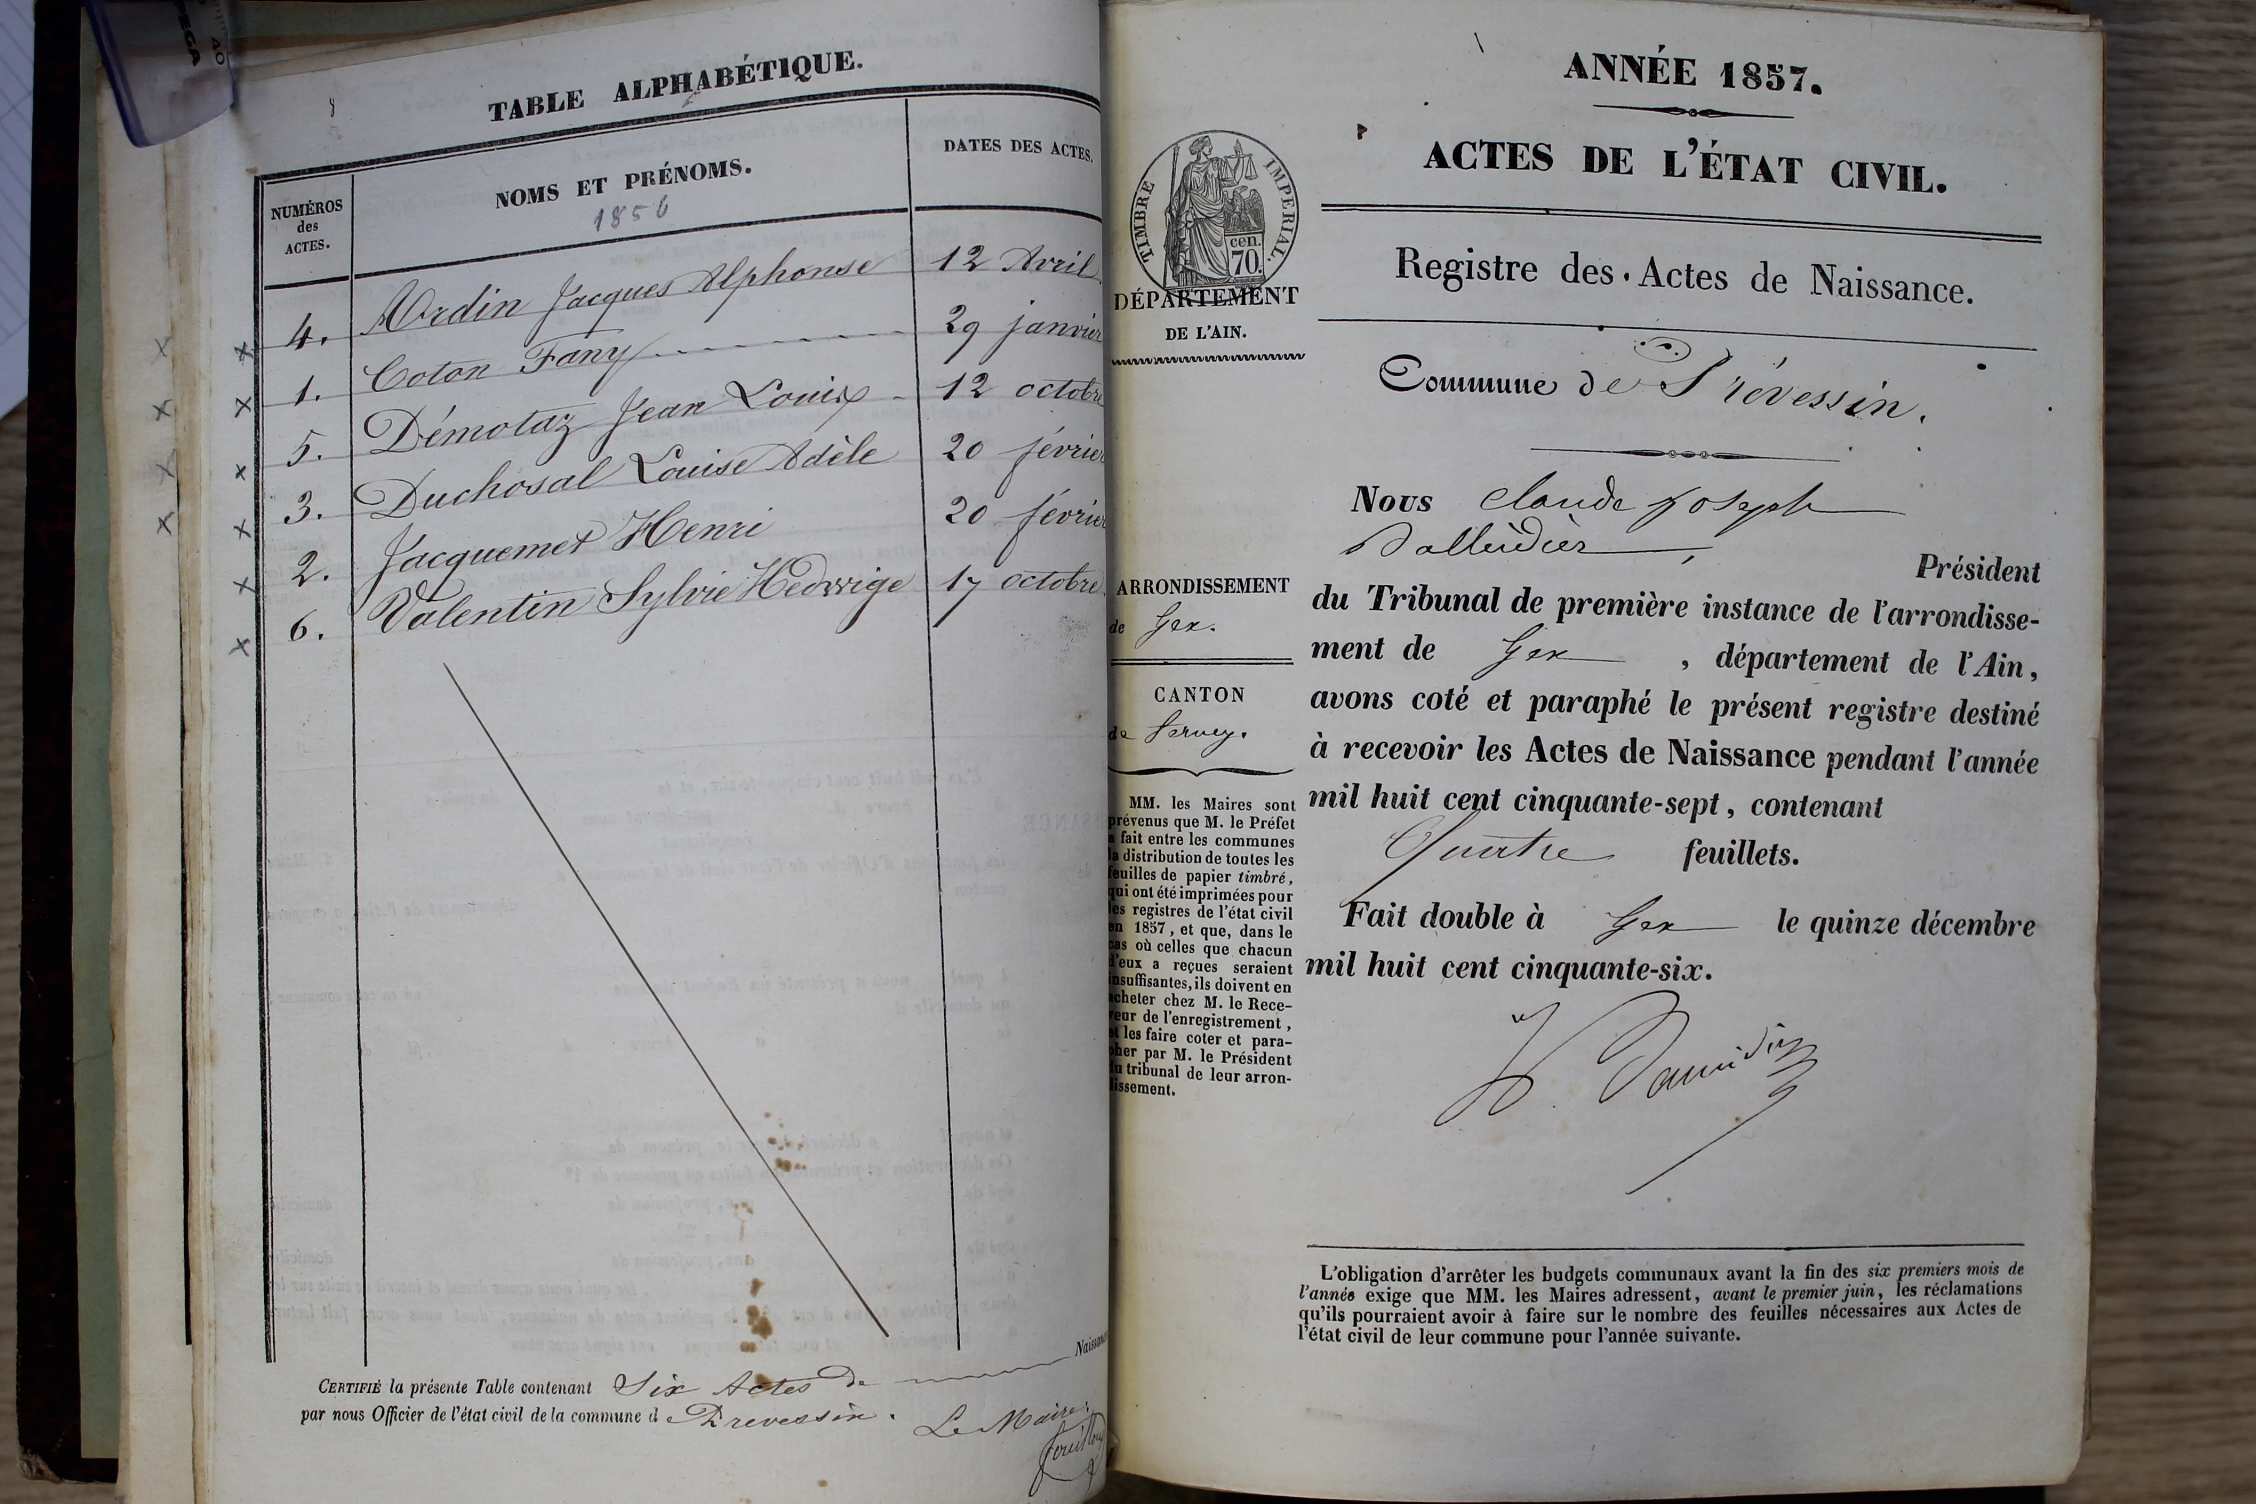 TABLE ALPHABÉTIQUE.
NUMÉROS des ACTES.
NOMS ET PRÉNOMS.
1856
DATES DES ACTES.
4. Ordin Jacques Alphonse 12 Avril
1. Coton Fany 29 janvier
5. Démotaz Jean Louis 12 octobre
3. Duchosal Louise Adèle 20 février
2. Jacquemet Henri 20 février
6. Valentin Sylvie Hedwige 17 octobre
Naissance
CERTIFIÉ la présente Table contenant Six Actes de
par nous Officier de l'état civil de la commune de Prevessin.
Le Maire,
ANNÉE 1857.
ACTES DE L'ÉTAT CIVIL.
TIMBRE IMPERIAL
70. cen.
DÉPARTEMENT
DE L'AIN.
Registre des Actes de Naissance.
Commune de Prévessin.
Nous Claude Joseph
Président
du Tribunal de première instance de l'arrondisse-
ment de Gex , département de l'Ain,
avons coté et paraphé le présent registre destiné
à recevoir les Actes de Naissance pendant l'année
mil huit cent cinquante-sept, contenant
Quatre feuillets.
Fait double à Gex le quinze décembre
mil huit cent cinquante-six.
ARRONDISSEMENT
de Gex.
CANTON
de Ferney.
MM. les Maires sont
prévenus que M. le Préfet
a fait entre les communes
la distribution de toutes les
feuilles de papier timbré,
qui ont été imprimées pour
les registres de l'état civil
en 1857, et que, dans le
cas où celles que chacun
d'eux a reçues seraient
insuffisantes, ils doivent en
acheter chez M. le Rece-
veur de l'enregistrement,
et les faire coter et para-
pher par M. le Président
du tribunal de leur arron-
dissement.
L'obligation d'arrêter les budgets communaux avant la fin des six premiers mois de
l'année exige que MM. les Maires adressent, avant le premier juin, les réclamations
qu'ils pourraient avoir à faire sur le nombre des feuilles nécessaires aux Actes de
l'état civil de leur commune pour l'année suivante.